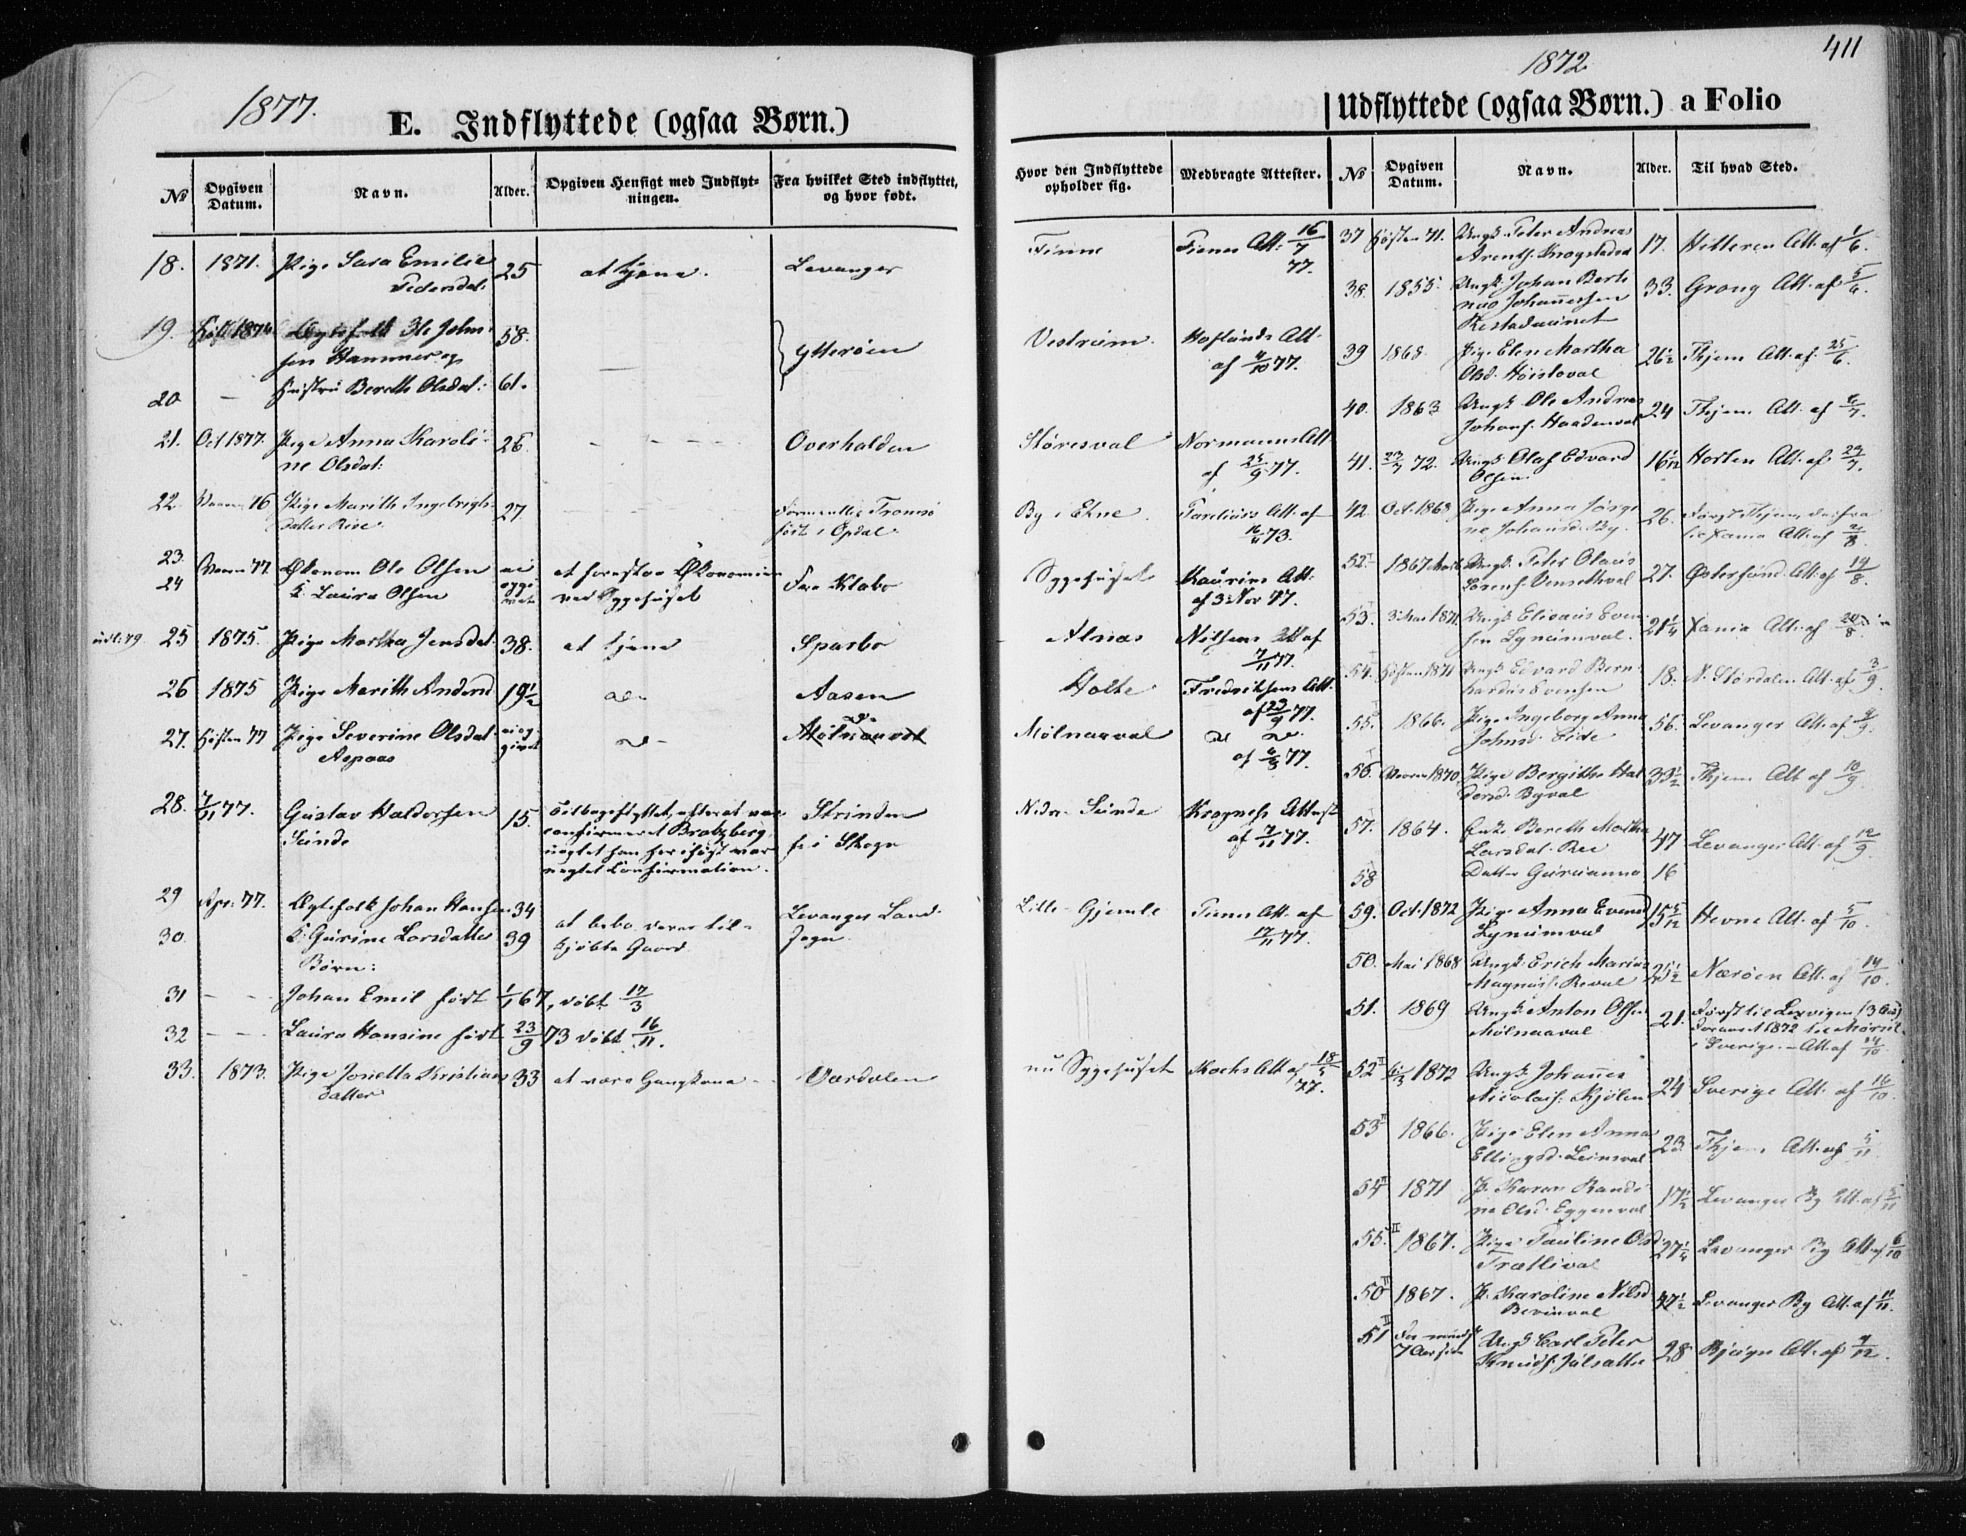 1877.
E. Indflyttede (ogsaa Børn.)
№
Opgiven Datum.
Navn.
Alder.
Opgiven Hensigt med Indflyt-
ningen.
Fra hvilket Sted indflyttet,
og hvor født.
18. 1871. Pige Sara Emilie 25 at tjene. Levanger
Pedersdat:
19. 1874 Ægtefolk Ole John- 58.
sen Hammer og Ytterøen
20 — Hustru Bereth Olsdat: 61.
21. Oct 1877. Pige Anna Karoli- 26. Overhalden
ne Olsdat:
22. 76 Pige Marith Ingebrigts- 27. Formentlig Tromsø
datter Rise. født i Opdal
23. Vaaren 77 Økonom Ole Olsen at forestaa Økonomien Fra Klabo
24 k. Laura Olsen ved Sygehuset
udfl. 79. 25 1875. Pige Martha Jensdat 38. at tjene Sparbo
26 1875 Pige Marith Andersd 19½ Aasen
27. Høsten 77 Pige Severine Olsdat
Aspaas
28. 7/11 77. Gustav Haldorsen 15. Tilbageflyttet, efterat være Strinden
Sunde confirmeret Bratsberg f. i Skogn
uagtet han her ifjost var
nægtet Confirmation.
29 Apr. 77. Ægtefolk Johan Hansen 34 at bebo deres til- Levanger Land-
30. k. Gurine Larsdatter 39 kjøbte Gaard. sogn.
Børn:
31 — — Johan Emil født 1/1 67, døbt 17/3
32 — — Laura Hansine født 23/9 73 døbt 16/11.
33. 1873. Pige Jonetta Kristians 33 at være Gangkone — Værdalen
datter
1872
411
Udflyttede (ogsaa Børn.) a Folio
Hvor den Indflyttede
opholder sig.
Medbragte Attester.
№
Opgiven
Datum.
Navn.
Alder.
Til hvad Sted.
Finne Att: 16/7
77.
Vestrum. Hoflunds Att.
af 4/10 77.
Støresval Normanns Att.
af 25/9 77.
By i Ekne. Att. af
16/11 73.
Sygehuset Kaurins Att.
af 3 Nov 77.
Alnæs Nilsens Att af
7/11 77.
Holte Fredriksens Att.
af 23/9 77.
Mølnaaval
af 77.
Nedr. Sunde Krogness Attest
af 7/11 77.
Lille-Gjemle Att. af
17/11 77.
nu Sygehuset Kochs Att af 18/5
77.
37 Høsten 71. Ungk. Peter Andreas 17. Hitteren Att. af 1/6.
Arents.
38. 1855. Ungk. Johan Bert- 33. Grong Att. af 5/6.
Johannessen
39 1868. Pige Elen Martha 26½ Thjem Att. af 25/6.
Olsd.
40. 1863 Ungk. Ole Andreas 24 Thjem Att. af 6/7.
Johans.
41. 23/7 72. Ungk. Olaf Edvard 16 1/12 Horten Att. af 29/7.
Olsen
42. Oct. 1868 Pige Anna Jørgi- 26. Først Thjem, derfra
ne Johansd. By. til Xania Att. af 2/8.
52 I 1867 Ungk. Peter Olaus 27. Østersund Att. af 14/8.
53. I Mai 1871 Ungk. Elisæus Even- 21¼ Xania Att. af 20/8.
sen Lynumval.
54. I Høsten 1871 Ungk. Edvard Bern- 18. N. Størdalen Att. af 3/9.
hardus Svensen
55. I 1866. Pige Ingeborg Anna 56. Levanger Att. af 9/9.
Johnsd. Eide
56. I Vaaren 1870 Pige Bergitha Hal- 33½ Thjem Att af 10/9.
dorsd. Byval
57. I 1864. Enke Bereth Martha 47 Levanger Att. af 12/9.
Larsdat. Ree
58 Datter Guruanna 16
59. Oct. 1872 Pige Anna Evensd 15 5/12 Hevne Att. af 5/10.
Lynumval
50. Mai 1868 Ungk. Erich Marius 25½ Nærøen Att. af 14/10.
Magnus. Reval
51. 1869 Ungk. Anton Olsen 21. Først til Lexvigen (3 Aar)
Mølnaaval Foraaret 1872 til Mørsil
i Sverige. — Att. af 14/10
52 II 1872 Ungk. Johannes 24 Sverige Att. af 16/10.
Nicolais. Kjølen
53 II 1866. Pige Elen Anna 23 Thjem Att. af 5/11.
Ellingsd. Leinsval
54 II 1871 P. Karen Randi- 17½ Levanger By Att. af 5/11
ne Olsd. Eggenval
55. II 1867. Pige Pauline Olsd 27¼ Levanger By Att. af 6/10
Trætlival
50 II 1867. P. Karoline Nilsd 42½ Levanger By Att. af 11/11.
51 II For 7 Aar siden Ungk. Carl Peter 28 Bjugn Att. af 4/12.
Knuds.